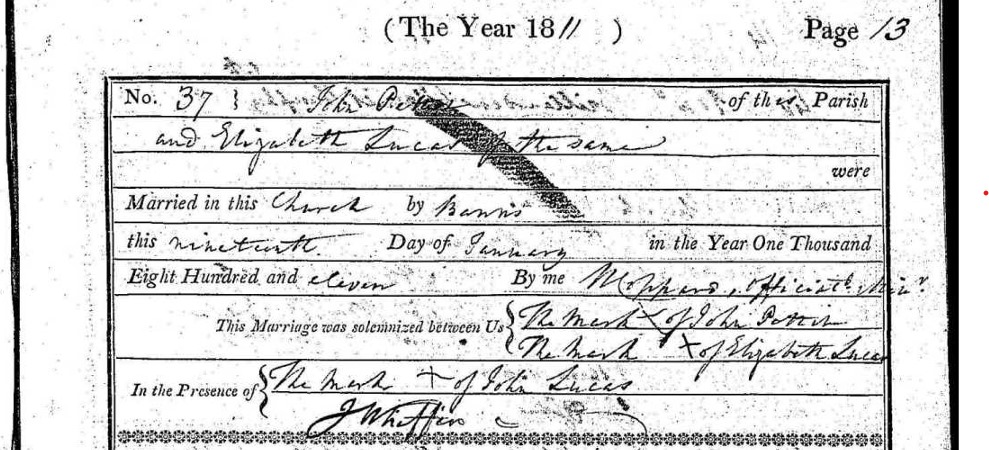 (The Year 1811 ) Page 13
No. 37 } John Pettit of this Parish
and Elizabeth Lucas of the same
were
Married in this Church by Banns
this nineteenth Day of January in the Year One Thousand
Eight Hundred and eleven By me
This Marriage was solemnized between Us { The Mark X of John Pettit
The Mark X of Elizabeth Lucas
In the Presence of { The Mark + of John Lucas
J Whiffin